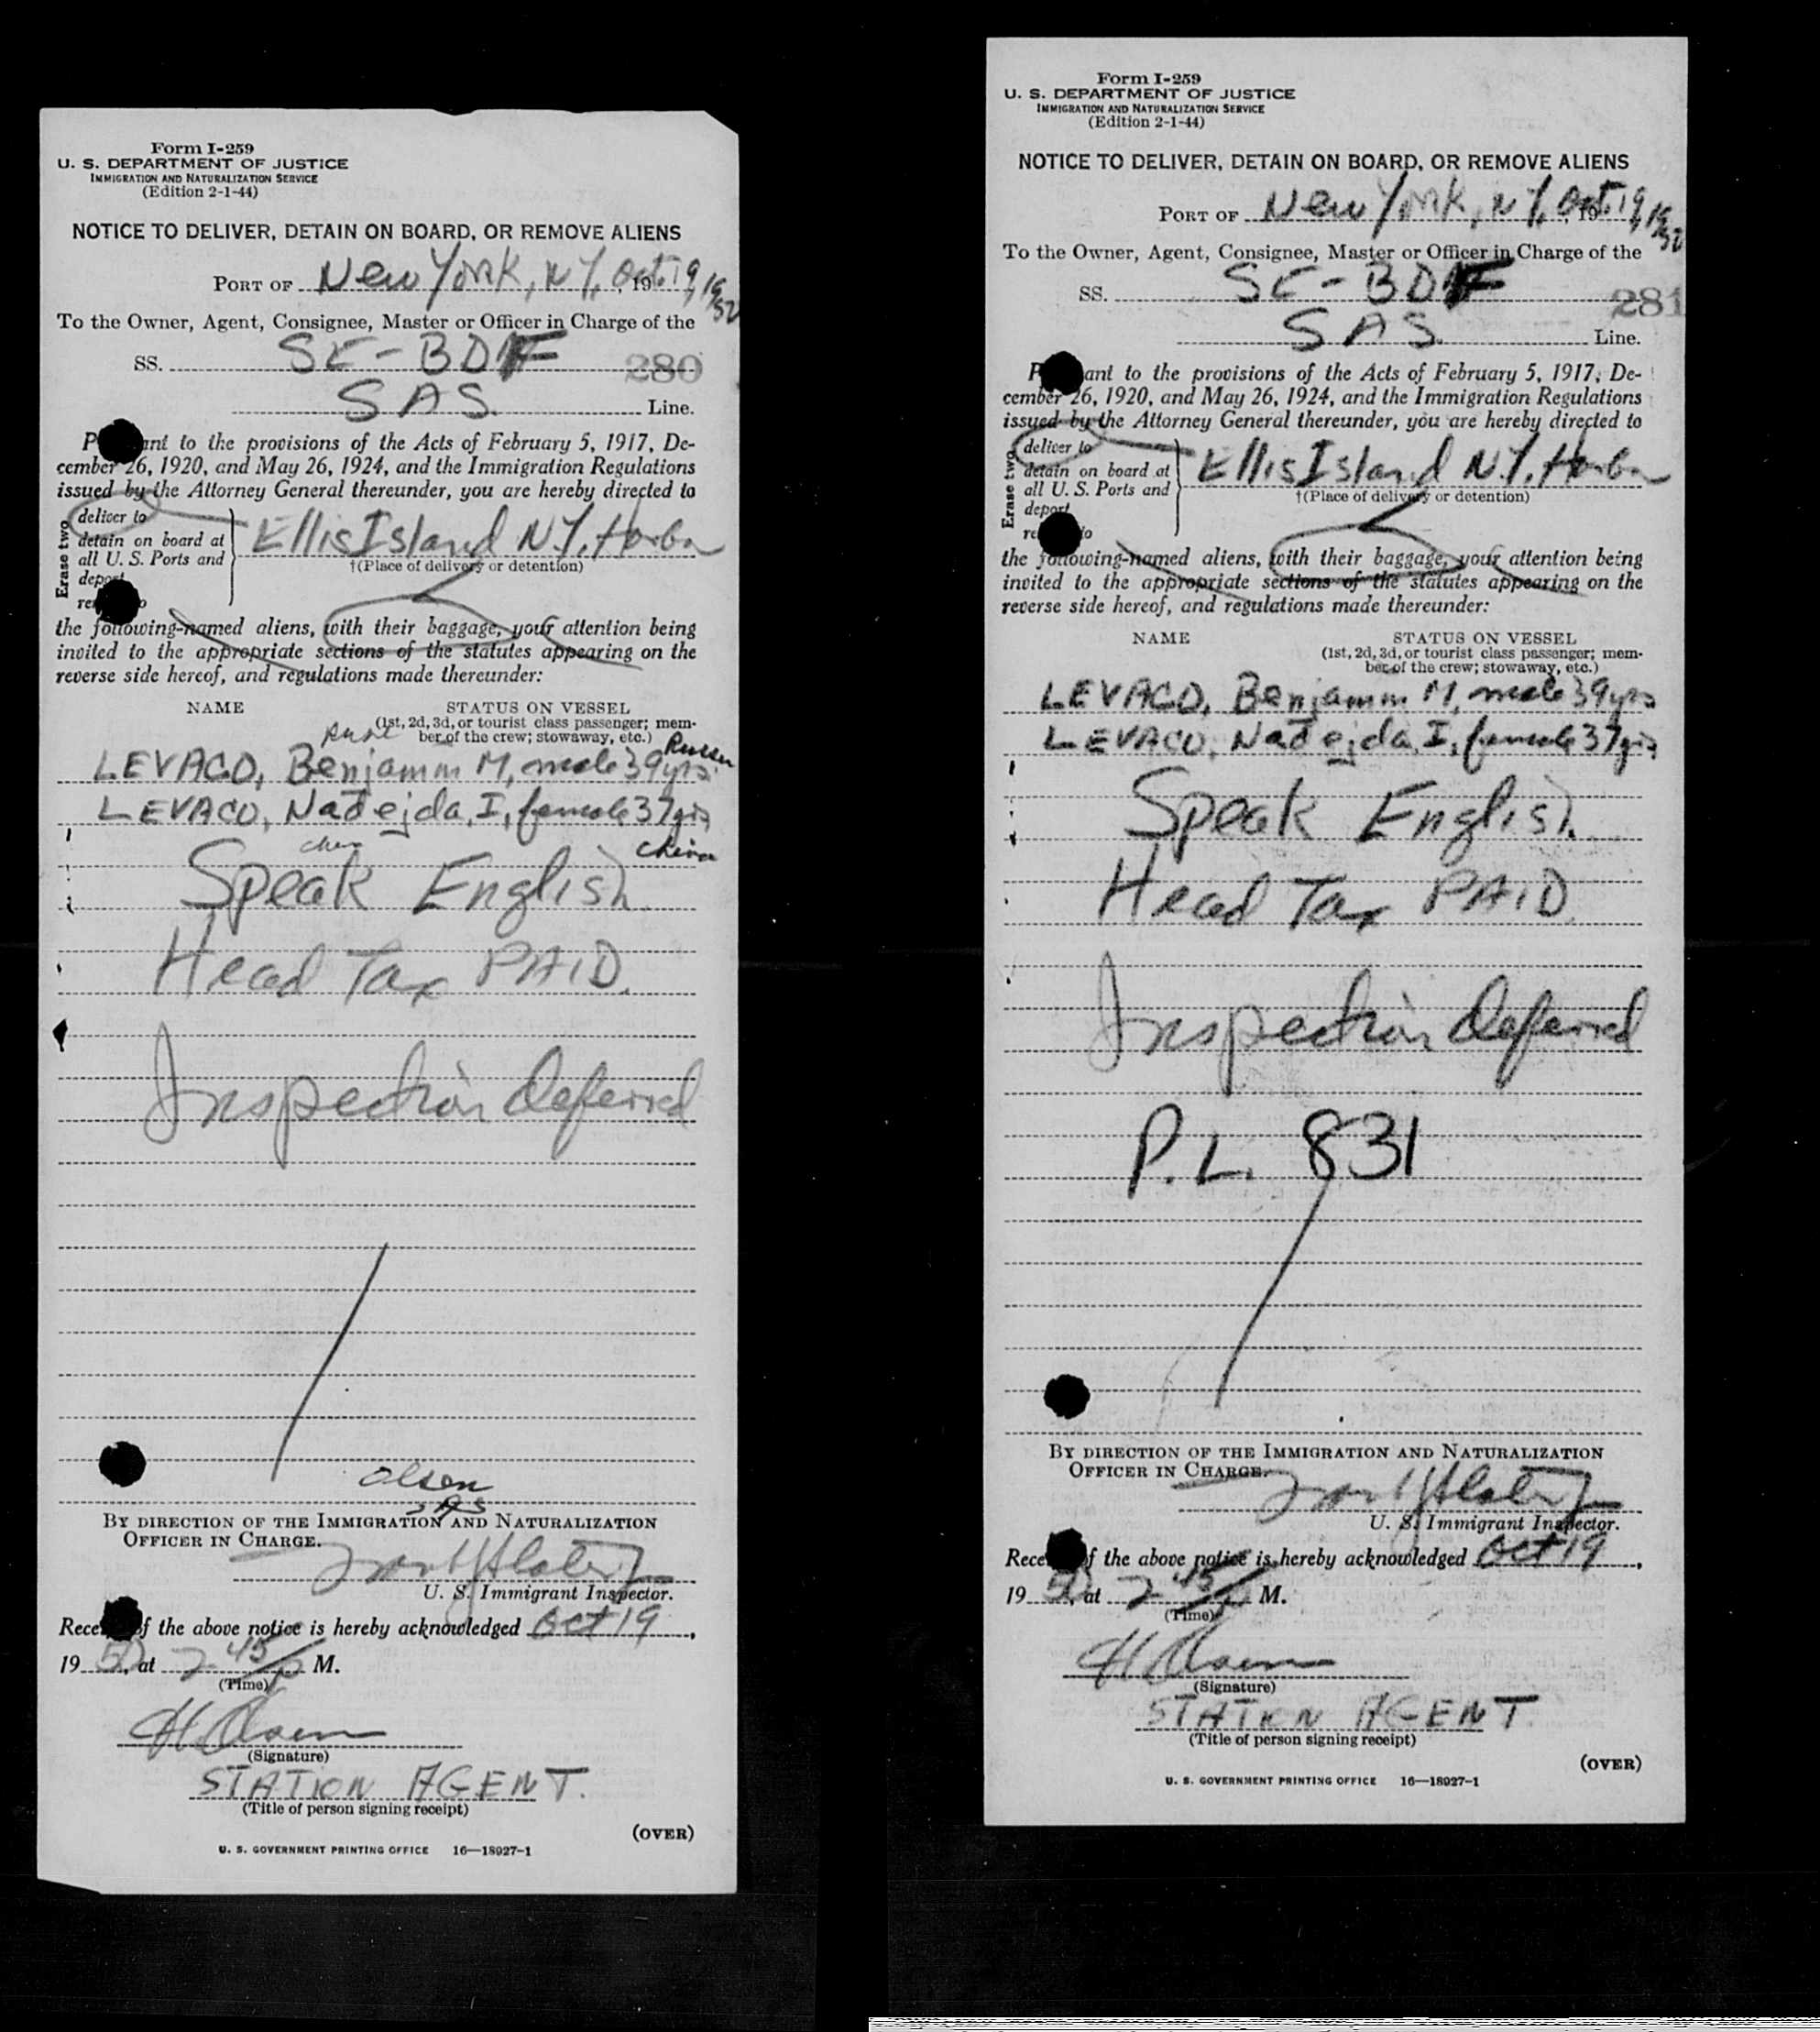 Form I-259
U. S. DEPARTMENT OF JUSTICE
IMMIGRATION AND NATURALIZATION SERVICE
(Edition 2-1-44)
NOTICE TO DELIVER, DETAIN ON BOARD, OR REMOVE ALIENS
PORT OF New York, N.Y. Oct. 19, 19 50
To the Owner, Agent, Consignee, Master or Officer in Charge of the
SS. SE-BDF 280
SAS. Line.
P ant to the provisions of the Acts of February 5, 1917, De-
cember 26, 1920, and May 26, 1924, and the Immigration Regulations
issued by the Attorney General thereunder, you are hereby directed to
Erase two
deliver to
detain on board at
all U. S. Ports and
deport
re o
Ellis Island N.Y. Harbor
†(Place of delivery or detention)
the following-named aliens, with their baggage, your attention being
invited to the appropriate sections of the statutes appearing on the
reverse side hereof, and regulations made thereunder:
NAME STATUS ON VESSEL
(1st, 2d, 3d, or tourist class passenger; mem-
ber of the crew; stowaway, etc.)
LEVACO, Benjamin M, male 39 yrs
LEVACO, Nadejda, I, female 37 yrs
China
Speak English
Head Tax PAID.
Inspection Deferred
Olsen
SAS
BY DIRECTION OF THE IMMIGRATION AND NATURALIZATION
OFFICER IN CHARGE.
U. S. Immigrant Inspector.
Rece f the above notice is hereby acknowledged Oct 19,
19 50, at 2 45 P M.
(Time)
H Olsen
(Signature)
STATION AGENT.
(Title of person signing receipt)
(OVER)
U. S. GOVERNMENT PRINTING OFFICE 16—18927-1
Form I-259
U. S. DEPARTMENT OF JUSTICE
IMMIGRATION AND NATURALIZATION SERVICE
(Edition 2-1-44)
NOTICE TO DELIVER, DETAIN ON BOARD, OR REMOVE ALIENS
PORT OF New York, N.Y. Oct. 19, 19 50
To the Owner, Agent, Consignee, Master or Officer in Charge of the
SS. SE-BDF 281
SAS. Line.
P ant to the provisions of the Acts of February 5, 1917, De-
cember 26, 1920, and May 26, 1924, and the Immigration Regulations
issued by the Attorney General thereunder, you are hereby directed to
Erase two
deliver to
detain on board at
all U. S. Ports and
deport
re o
Ellis Island N.Y. Harbor
†(Place of delivery or detention)
the following-named aliens, with their baggage, your attention being
invited to the appropriate sections of the statutes appearing on the
reverse side hereof, and regulations made thereunder:
NAME STATUS ON VESSEL
(1st, 2d, 3d, or tourist class passenger; mem-
ber of the crew; stowaway, etc.)
LEVACO, Benjamin M, male 39 yrs
LEVACO, Nadejda, I, female 37 yrs
Speak English
Head Tax PAID
Inspection Deferred
P.L. 831
BY DIRECTION OF THE IMMIGRATION AND NATURALIZATION
OFFICER IN CHARGE.
U. S. Immigrant Inspector.
Rece f the above notice is hereby acknowledged Oct 19,
19 50, at 2 45 P M.
(Time)
H Olsen
(Signature)
STATION AGENT.
(Title of person signing receipt)
(OVER)
U. S. GOVERNMENT PRINTING OFFICE 16—18927-1